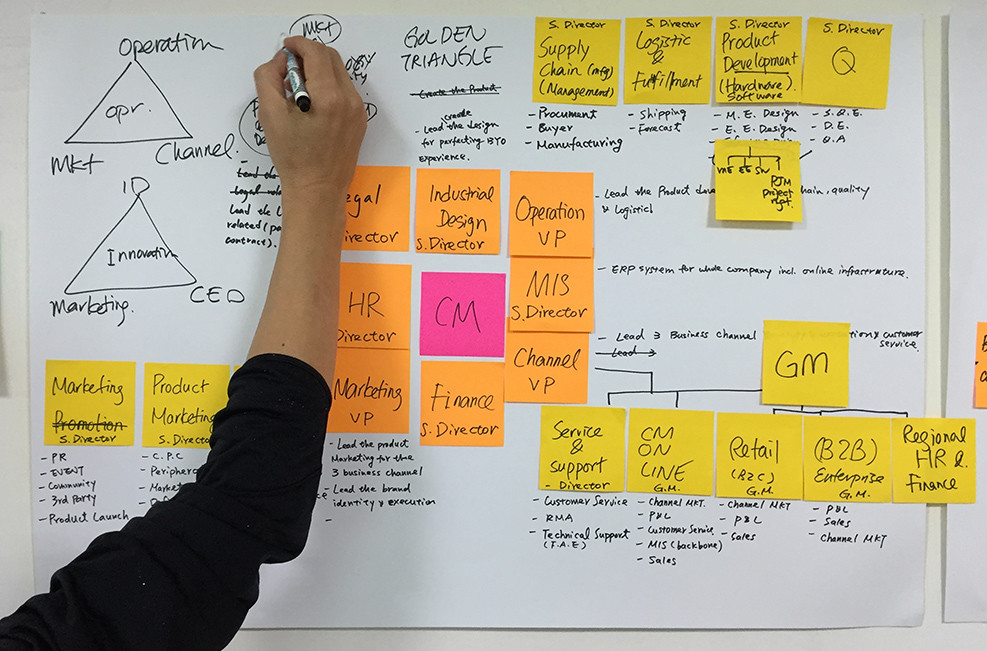 Operation
Opr.
MKT
Channel.
ID
Innovation
Marketing.
CEO
MKT
GOLDEN
TRIANGLE
Create the Product
create
- Lead the design
for perfecting BYO
experience.
Lead the
Legal
Lead the L
related (pa
contract).
S. Director
Supply
Chain (mfg)
(Management)
- Procument
- Buyer
- Manufacturing
S. Director
Logistic
&
Fulfillment
- Shipping
- Forecast
S. Director
Product
Development
(Hardware).
Software
- M.E. Design
- E.E. Design
S. Director
Q
- S.Q.E.
- D.E.
- Q.A
ME EE SW
PJM
project
mgt.
egal
irector
Industrial
Design
S. Director
Operation
VP
- Lead the Product deve
hain, quality
& Logistics
HR
Director
CM
MIS
S. Director
- ERP system for whole company incl. online infrastruture.
Marketing
VP
Finance
S. Director
Channel
VP
- Lead 3 Business channel
& customer
service.
- Lead 3
- Lead the product
Marketing for the
3 business channel
- Lead the brand
identity & execution
-
GM
Marketing
Promotion
S. Director
- PR
- EVENT
- Community
- 3rd Party
- Product Launch
Product
Marketing
S. Direct
- C.P.C
- Periphera
- Market
Service
&
Support
- Director
- Customer Service
- RMA
- Technical Support
(F.A.E)
CM
ON
LINE
G.M.
- Channel MKT.
- P&L
- Customer Service
- MIS (backbone)
- Sales
Retail
(B2C)
G.M.
- Channel MKT
- P&L
- Sales
(B2B)
Enterprise
G.M.
- P&L
- Sales
- Channel MKT
Regional
HR &
Finance